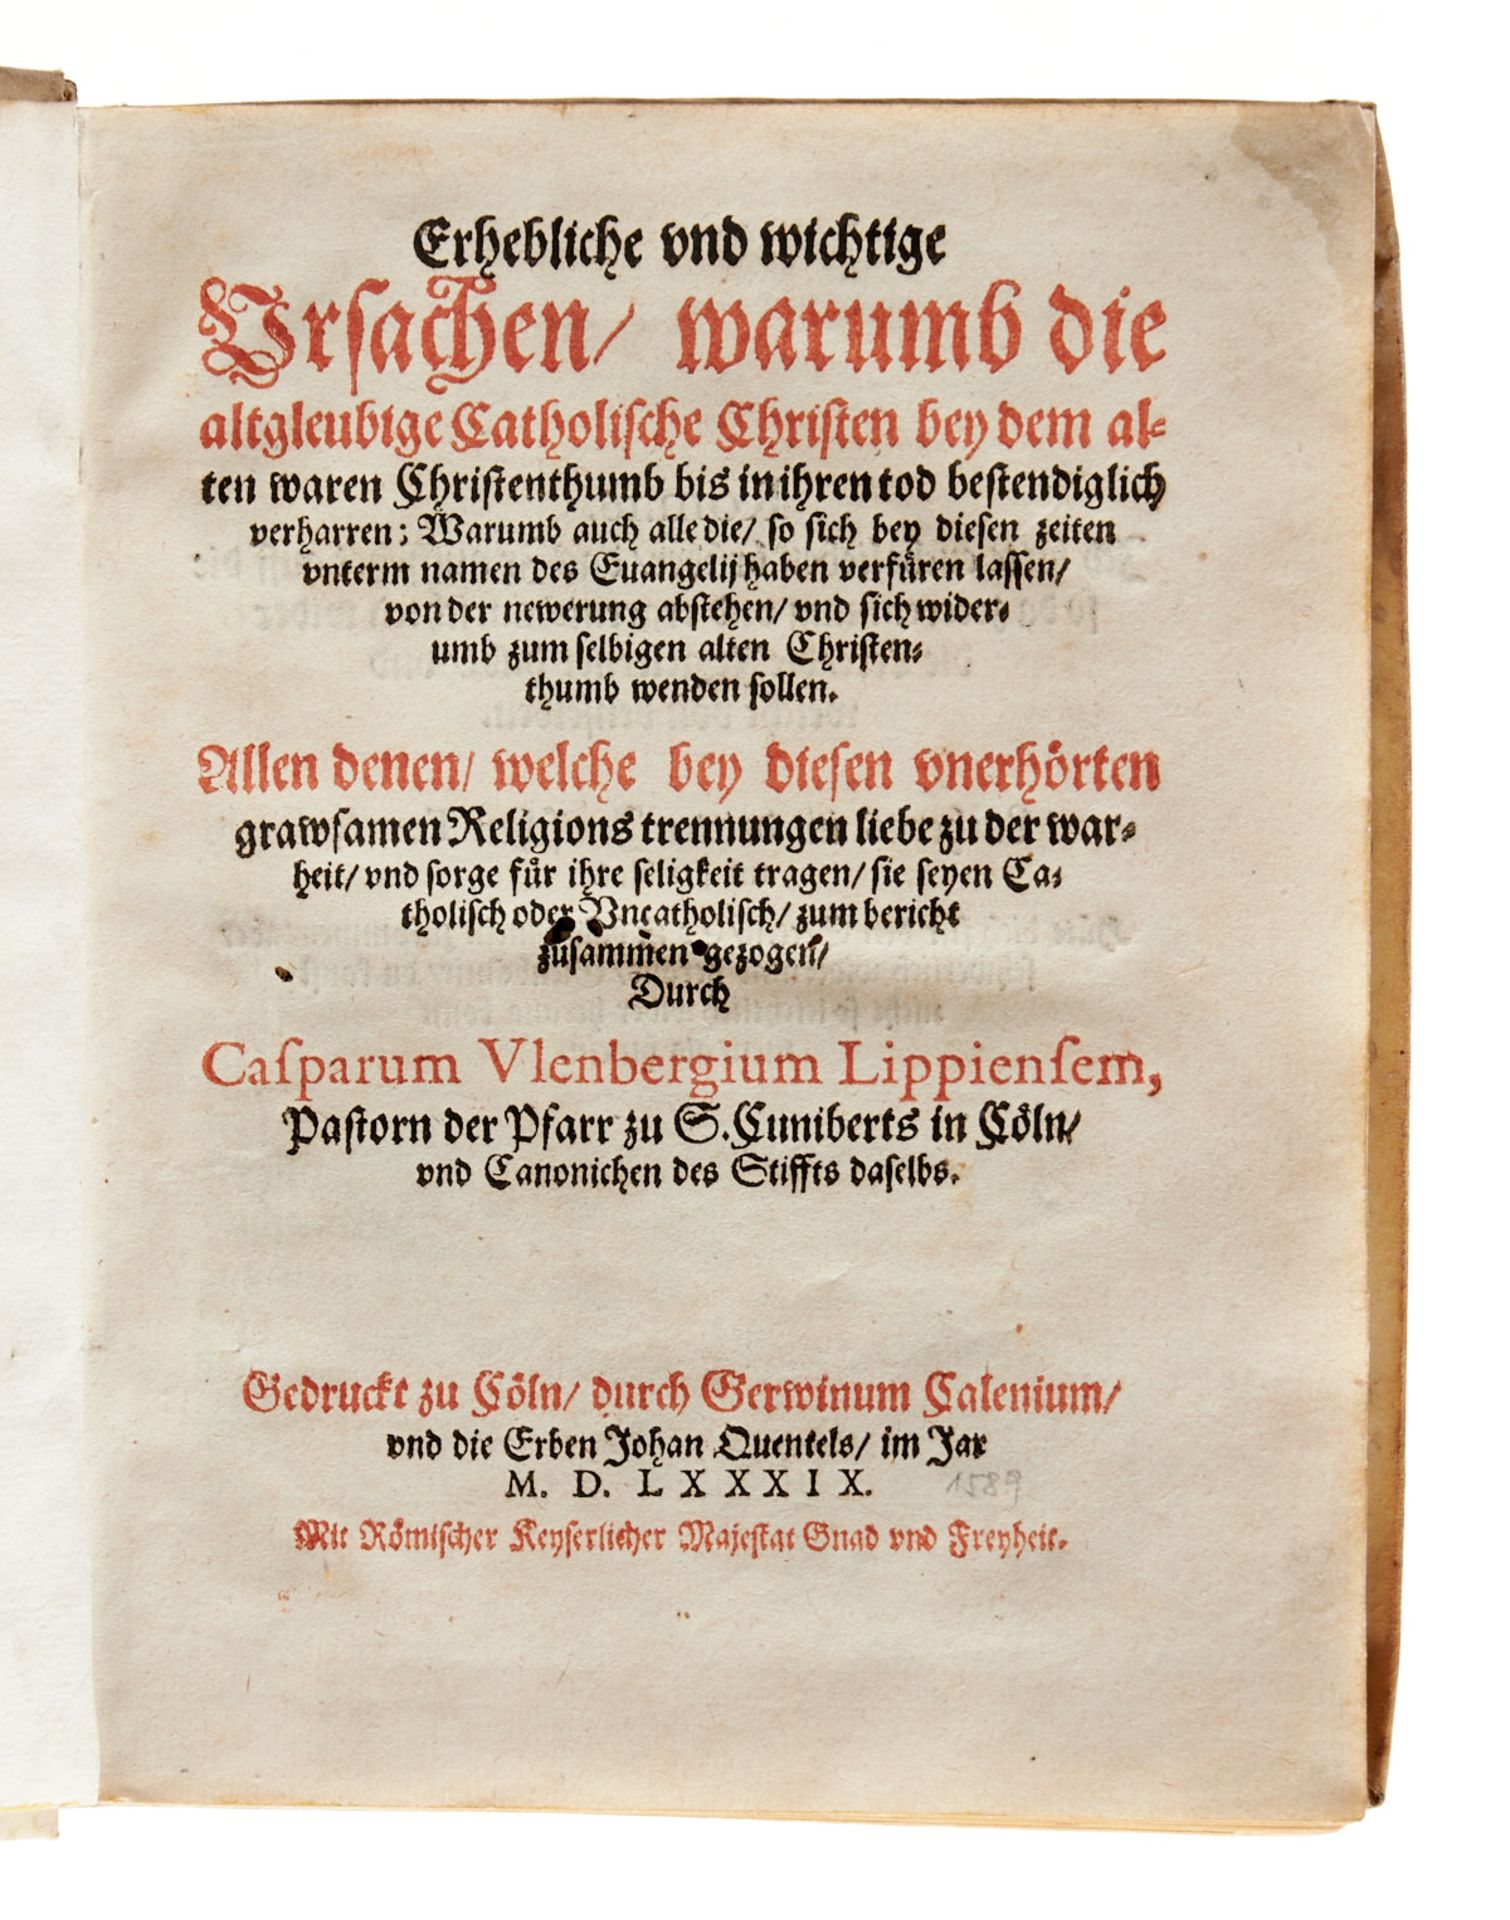 Erhebliche vnd wichtige
Vrsachen/ warumb die
altgleubige Catholische Christen bey dem al⸗
ten waren Christenthumb bis in ihren tod bestendiglich
verharren: Warumb auch alle die/ so sich bey diesen zeiten
vnterm namen des Euangelij haben verfüren lassen/
von der newerung abstehen/ vnd sich wider⸗
umb zum selbigen alten Christen⸗
thumb wenden sollen.
Allen denen/ welche bey diesen vnerhörten
grawsamen Religions trennungen liebe zu der war⸗
heit/ vnd sorge für ihre seligkeit tragen/ sie seyen Ca⸗
tholisch oder Vncatholisch/ zum bericht
zusammen gezogen/
Durch
Casparum Vlenbergium Lippiensem,
Pastorn der Pfarr zu S. Cuniberts in Cöln/
vnd Canonichen des Stiffts daselbs.
Gedruckt zu Cöln/ durch Gerwinum Calenium/
vnd die Erben Johan Quentels/ im Jar
M. D. L X X X I X. 1589
Mit Römischer Keyserlicher Majestat Gnad vnd Freyheit.